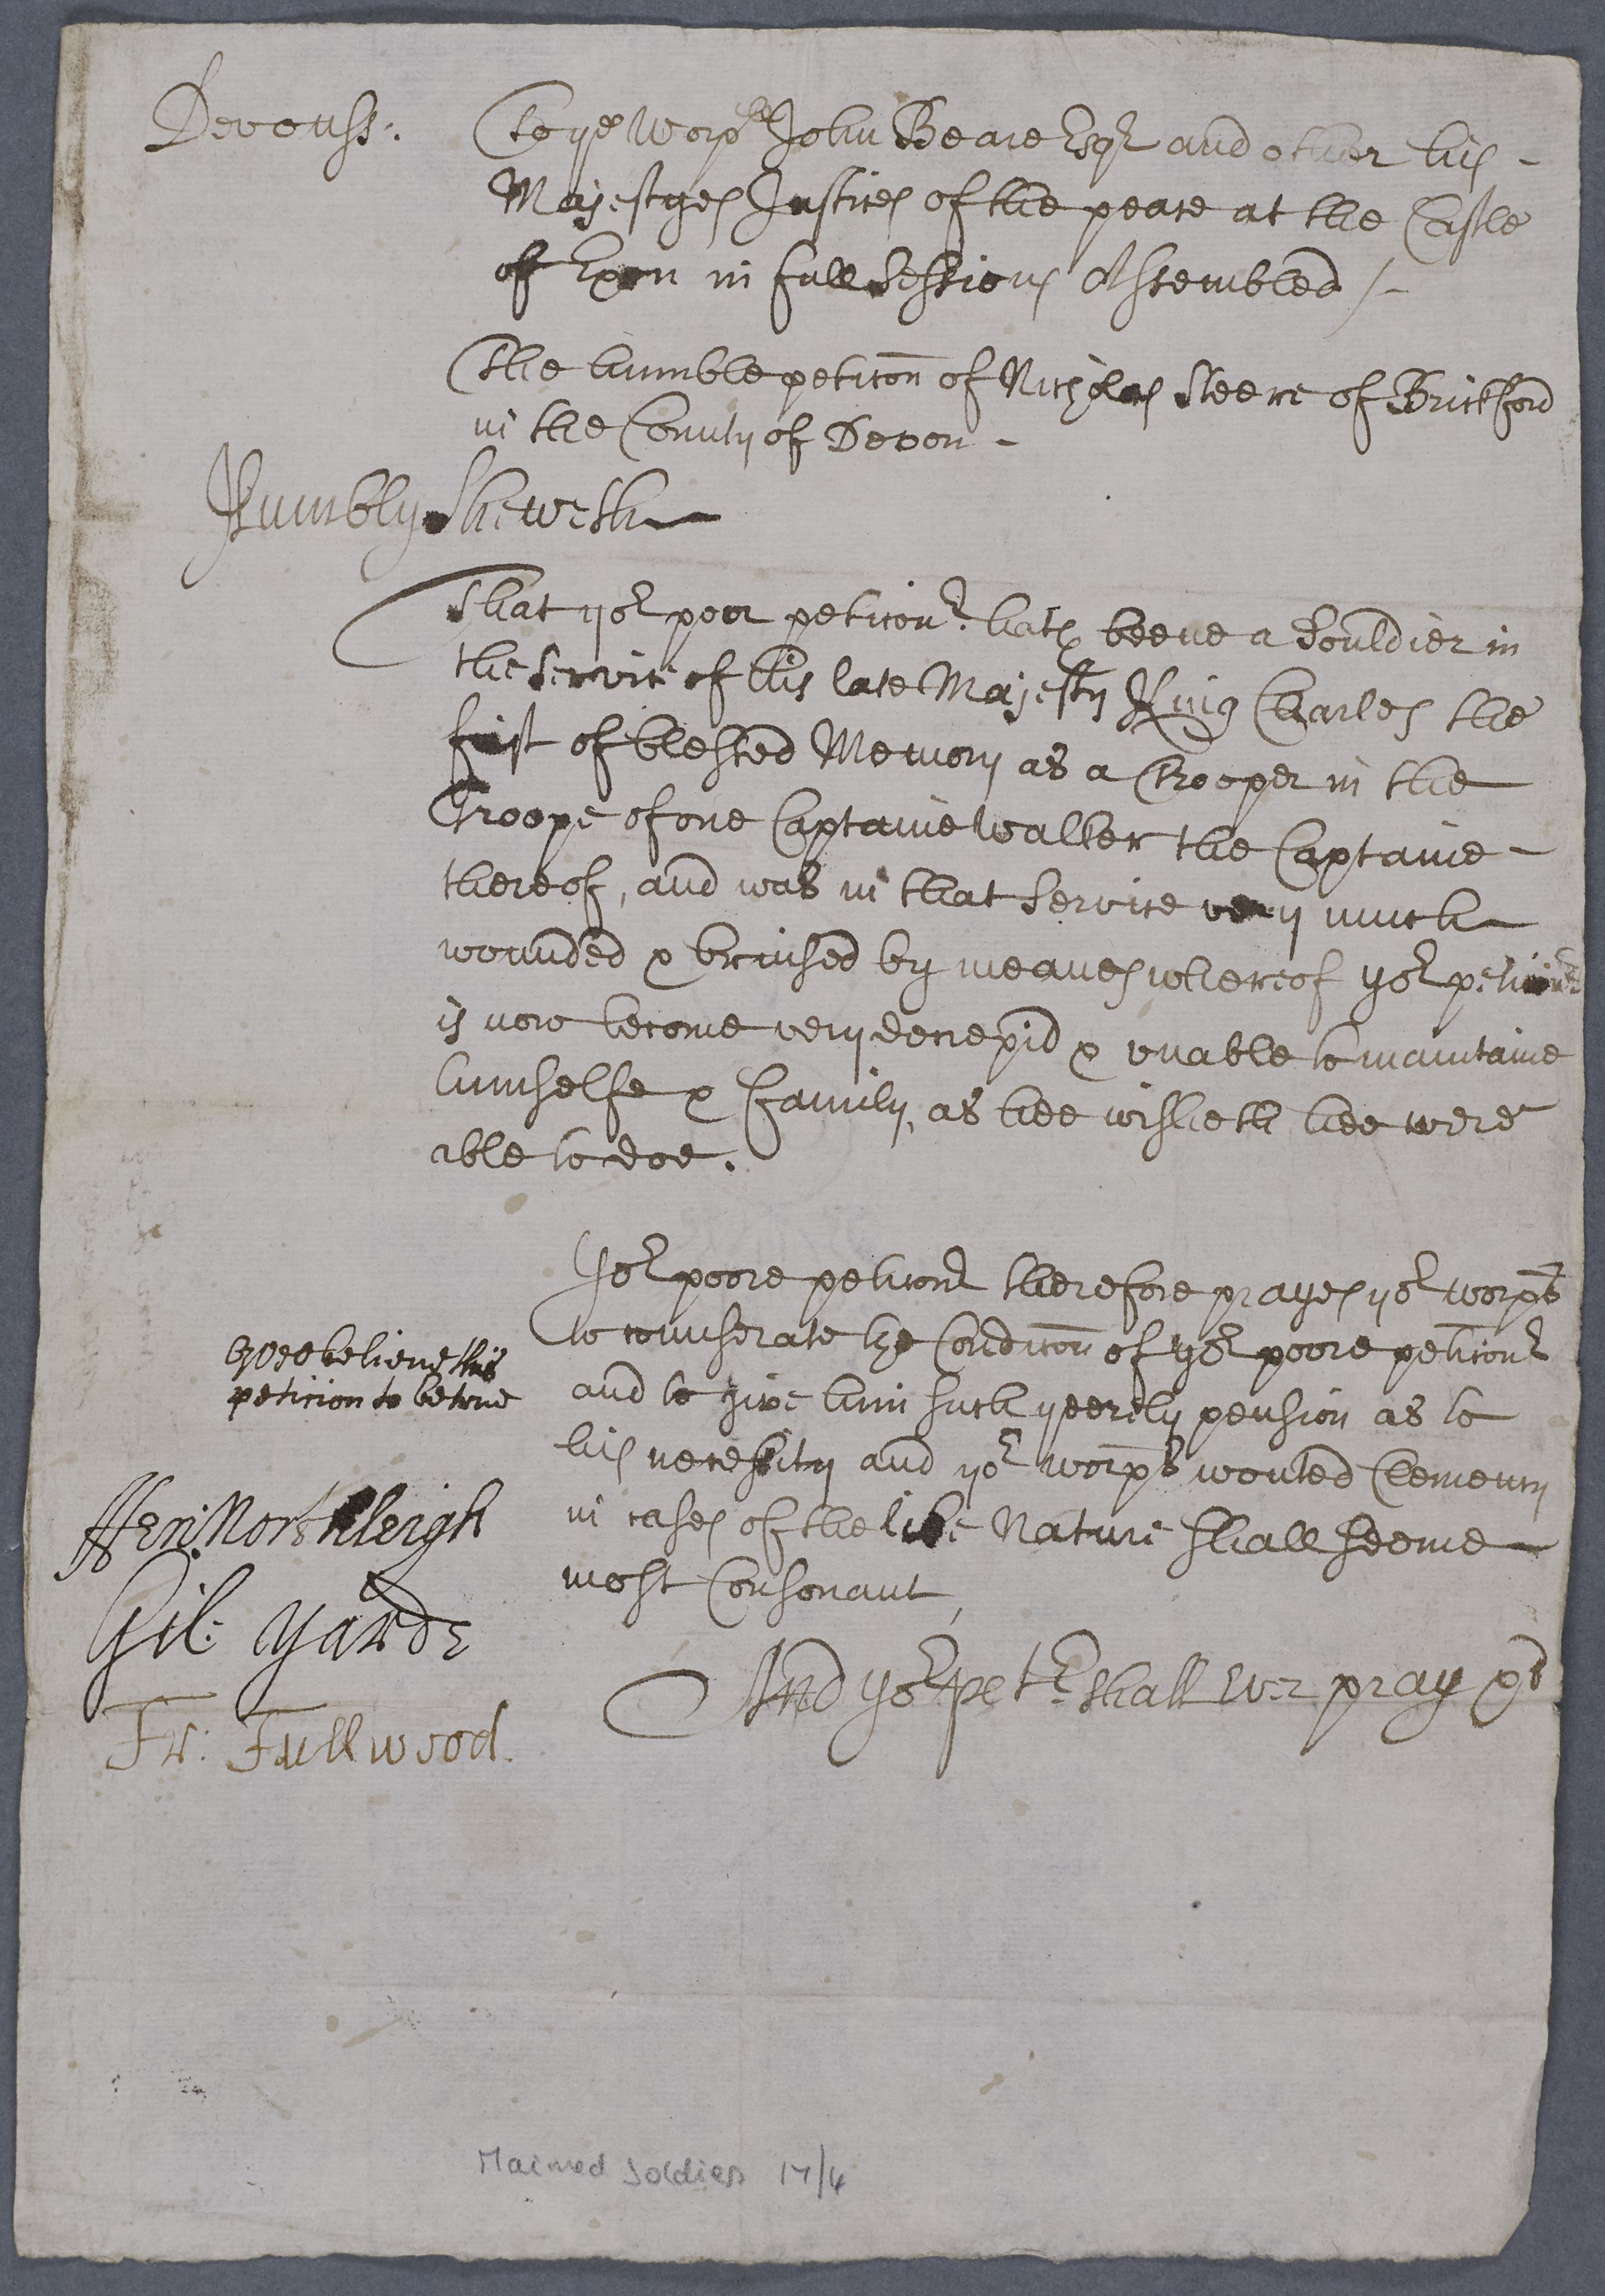 Devonss:
To ye Worpll John Beare Esqr and other his -
Majestyes Justices of the peace at the Castle
of Exon in full Sessions Assembled /-
The humble peticon of Nicholas Steere of Brickford
in the County of Devon -
Humbly Sheweth
That yor poor peticonr hath beene a Souldier in
the Service of his late Majesty King Charles the
first of blessed Memory as a Trooper in the
Troope of one Captaine Walker the Captaine -
thereof, and was in that Service very much
wounded & bruised by meanes whereof yor peticonr
is now become very decrepid & unable to maintaine
himselfe & Family, as hee wisheth hee were
able to doe.
Yor poore peticonr therefore prayes yor worpps
to comiserate the Condicon of yor poore peticonr
and to give him such yeerely pension as to
his necessity and yor worpps wonted Clemency
in cases of the like Nature shall seeme
most Consonant,
And yor petr shall ever pray &c
Wee beleive this
peticion to be true
Hen: Northleigh
Gil: Yarde
Fr: Fullwood.
Maimed Soldiers 17/4